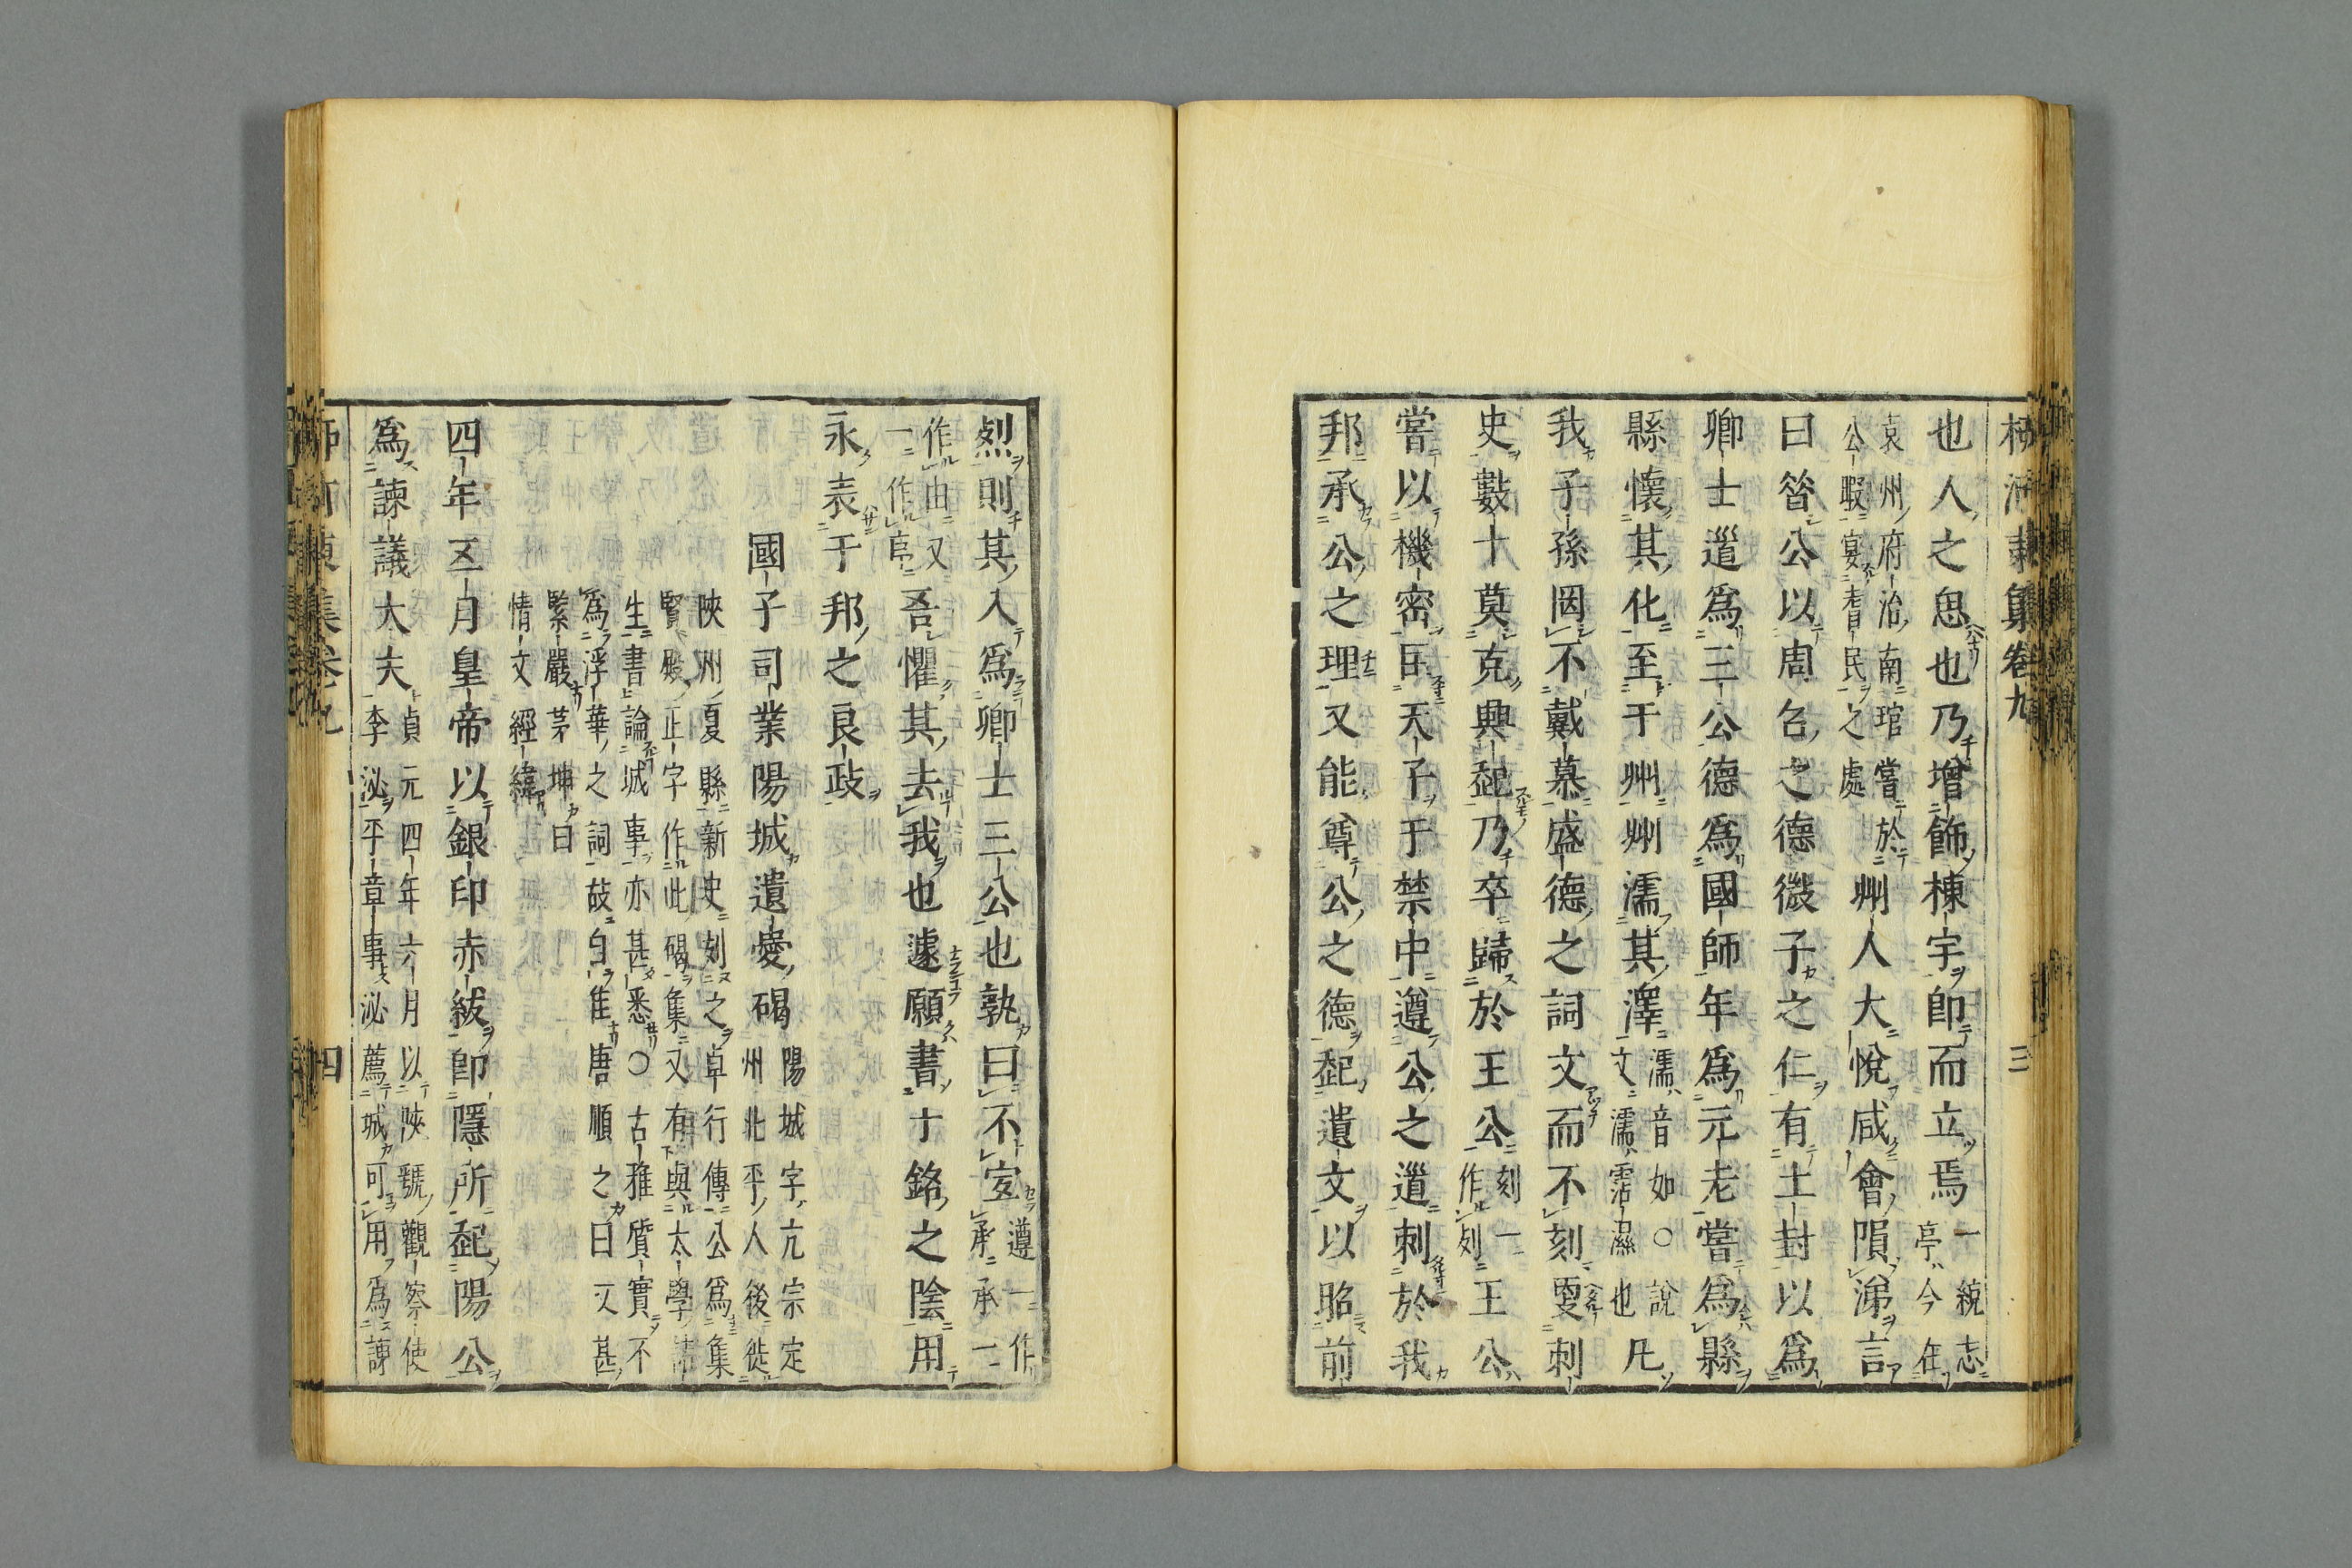 也人之思也乃增飾棟宇卽而立焉一統志亭今在
袁州府治南琯嘗於公暇宴耆民之處州人大悅咸會隕涕言
曰昝公以周召之德微子之仁有土封以爲
卿士道爲三公德爲國師年爲元老嘗爲縣
縣懷其化至于州州濡其澤濡音如○說文濡霑濕也凡
我子孫罔不戴慕盛德之詞文而不刻要刺
史數十莫克興起乃卒歸於王公刻一作列王公
嘗以機密匡天子于禁中遵公之道刺於我
邦承公之理又能尊公之德起遺文以昭前
卷九
三
烈則其入爲卿士三公也孰曰不宜遵一作承承一
作由又一作亭吾懼其去我也遽願書于銘之陰用
永表于邦之良政
國子司業陽城遺愛碣陽城字亢宗定州北平人後徙
陝州夏縣新史列之卓行傳公爲集
賢殿正字作此碣集又有與太學諸
生書論城事亦甚悉○古雅質實不
爲浮華之詞故自佳唐順之曰文甚
緊嚴茅坤曰
情文經緯
四年五月皇帝以銀印赤紱卽隱所起陽公
爲諫議大夫貞元四年六月以陝虢觀察使李泌平章事泌薦城可用爲諫
四